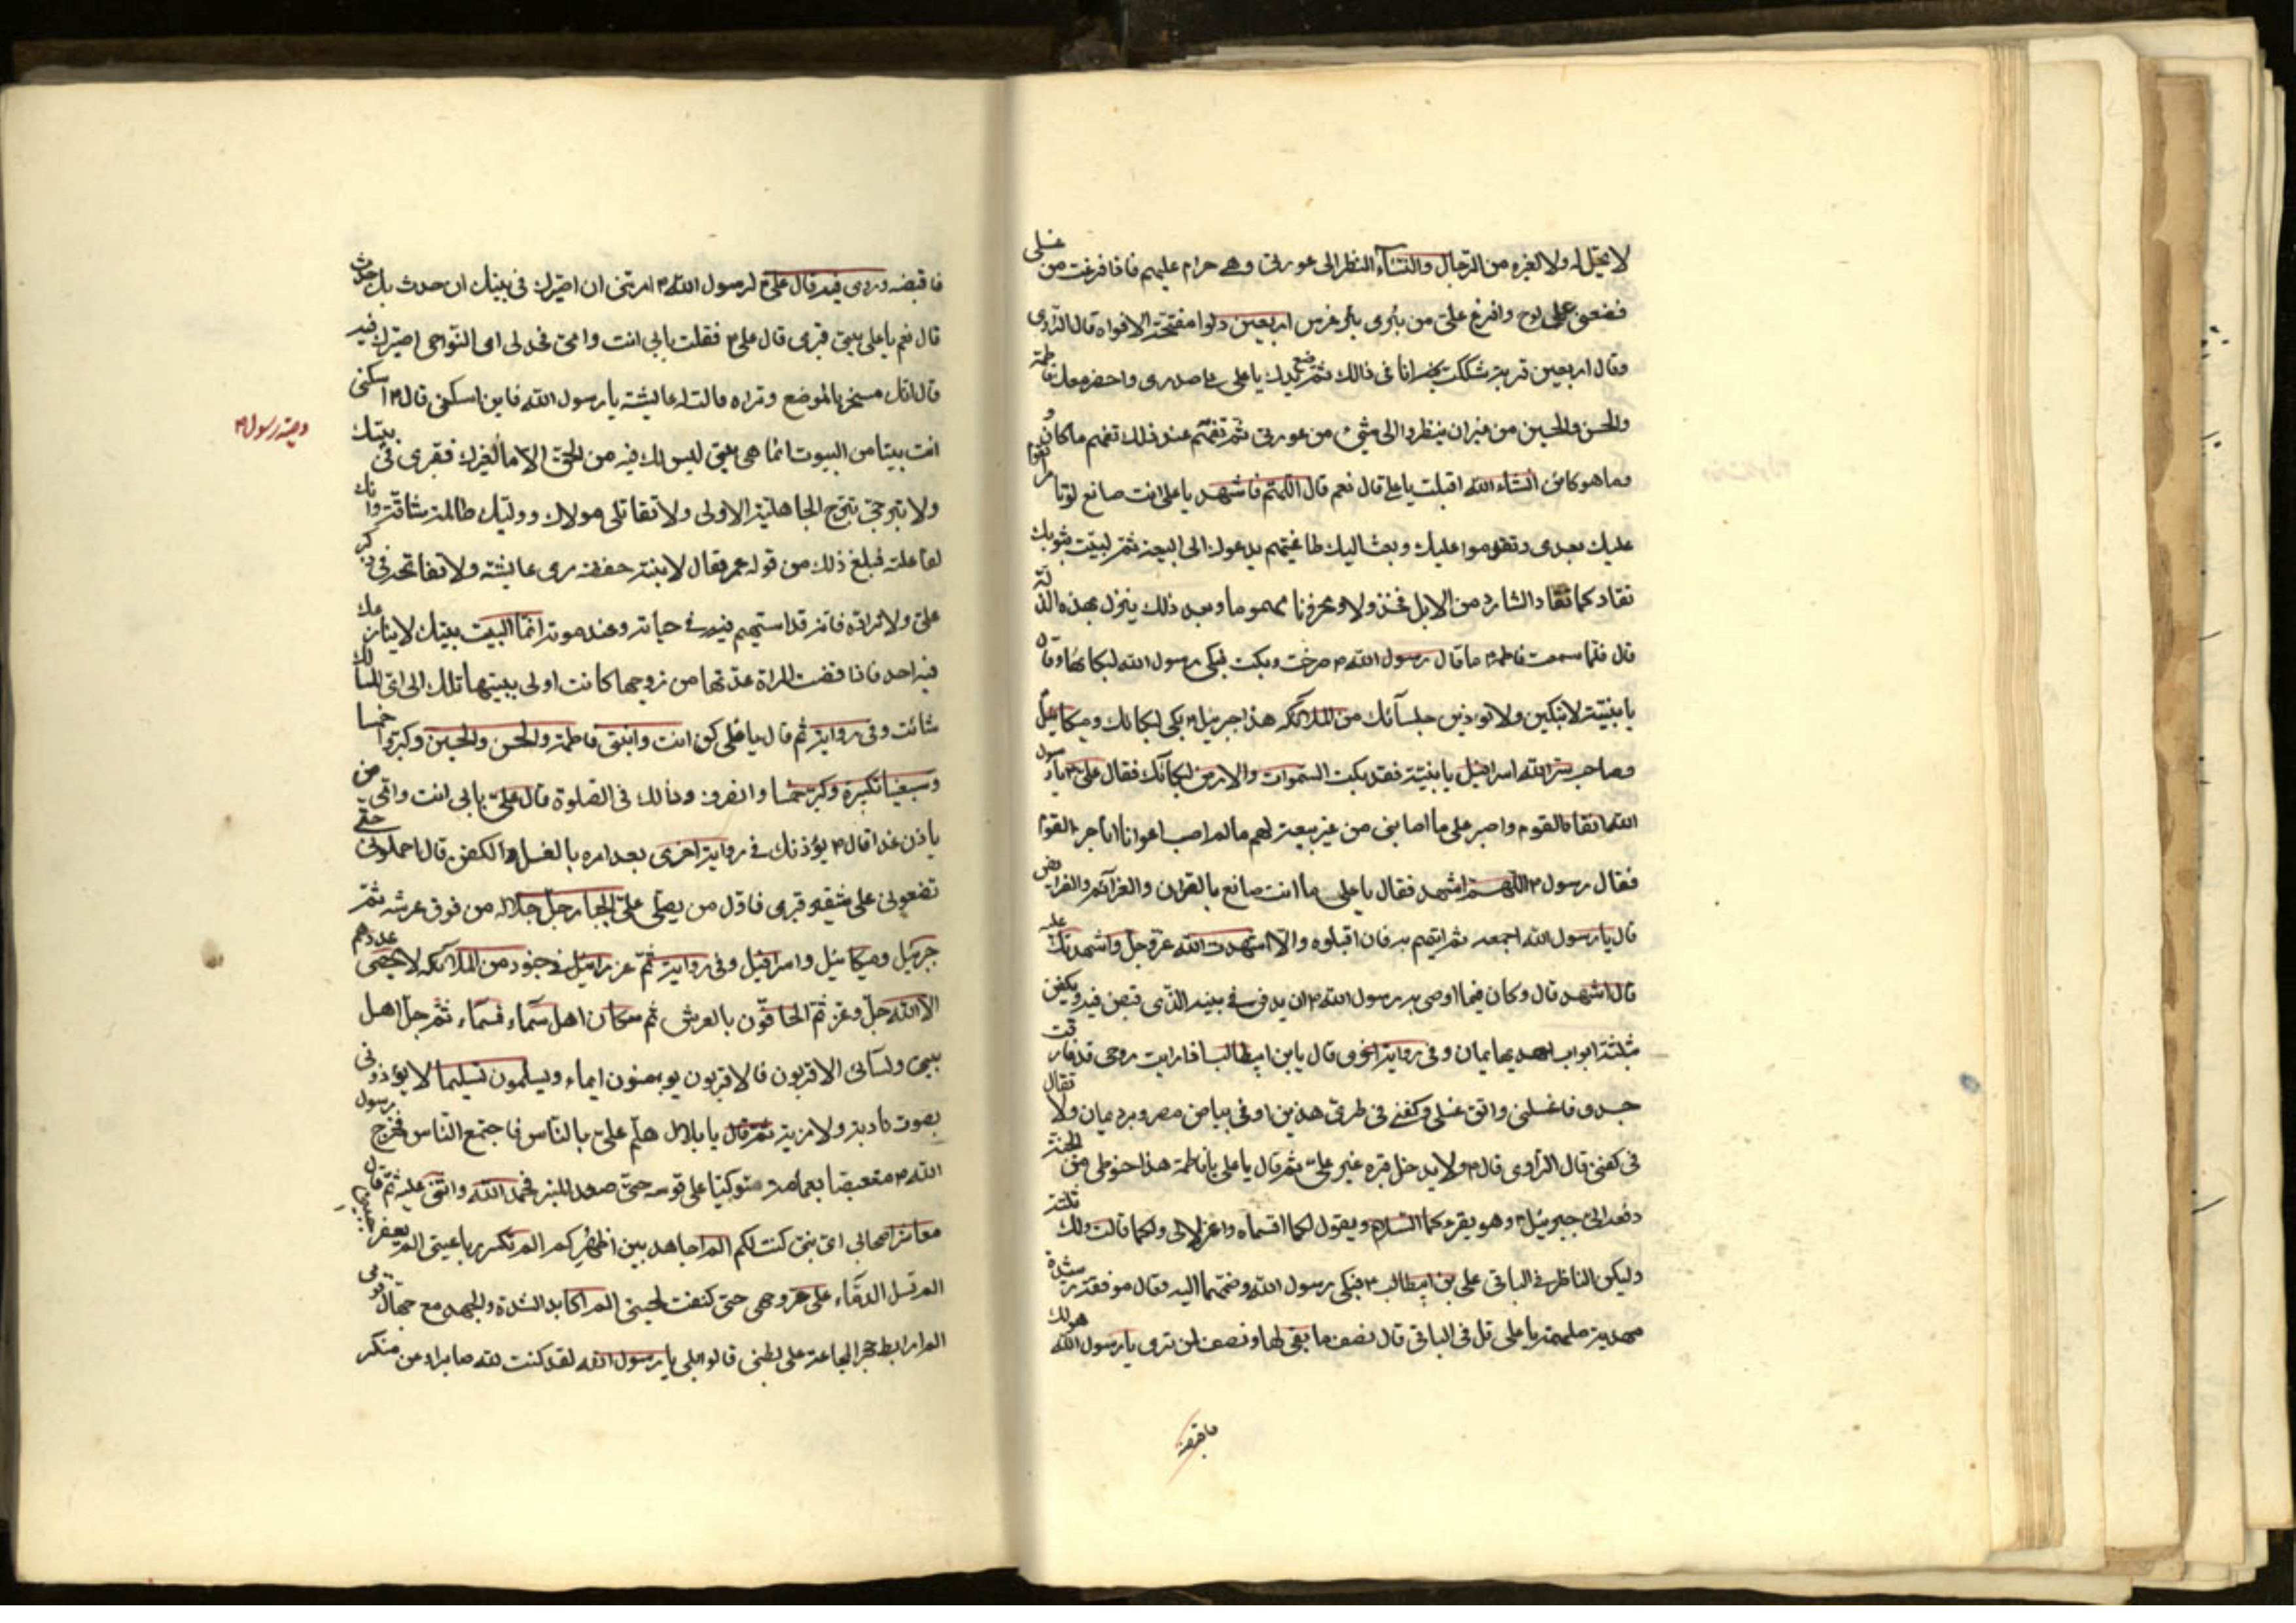 لا يحل له ولا لغيره من الرجال والنساء النظر الى عورتى وهى حرام عليهم فاذا فرغت من غسلى
فضعنى على لوح وافرغ على من بئرى بئر غرس اربعين دلوا مفتحة الافواه قال الراوى
وقال اربعين قربة شككت انا فى ذالك ثم ضع يدك يا على على صدرى واحضر معك فاطمة
والحسن والحسين من غير ان ينظروا الى شىء من عورتى ثم تفهم عند ذلك تفهم ما كان و
وما هو كائن انشاء الله اقبلت يا على قال نعم قال اللهم فاشهد يا على ما انت صانع لو تامر القوم
عليك بعدى وتقدموا عليك وبعث اليك طاغيتهم يدعوك الى البيعة ثم لببت بثوبك
تقاد كما يقاد الشارد من الابل مخذولا محزونا مهموما وبعد ذلك ينزل بهذه الذلة
قال فلما سمعت فاطمة ما قال رسول الله ٣ صرخت وبكت فبكى رسول الله لبكائها وقال
يا بنية لا تبكين ولا تؤذين جلسائك من الملائكة هذا جبرئيل ٣ بكى لبكائك وميكائيل
وصاحب سر الله اسرافيل يا بنية فقد بكت السموات والارض لبكائك فقال على ٣ يا رسول
الله انقاد للقوم واصبر على ما اصابنى من غير بيعة لهم ما لم اصب اعوانا لم اناجز القوم
فقال رسول ٣ اللهم اشهد فقال يا على ما انت صانع بالقران والعزائم والفرايض
قال يا رسول الله اجمعه ثم اتيهم به فان اقبلوه والا اشهدت الله عز وجل واشهدتك عليه
قال اشهد قال وكان فيما اوصى به رسول الله ٣ ان يدفن فى بيته الذى قبض فيه ويكفن
بثلثة اثواب احدها يمان وفى رواية اخرى قال يابن ابيطالب اذا رايت روحى قد فارقت
جسدى فاغسلنى وانق غسلى وكفنى فى طمرى هذين او فى بياض مصر وبرد يمان ولا تغال
فى كفنى قال الراوى قال ٣ ولا يدخل قبره غير على ثم قال يا على يا فاطمة هذا حنوطى من الجنة
دفعه الى جبرئيل ٣ وهو يقرءكما السلام ويقول لكما اقسماه واعزلا لى ولكما قالت ولك ثلثه
وليكن الناظر فى الباقى على بن ابيطالب ٣ فبكى رسول الله وضمها اليه فقال موفقة رشيدة
مهدية ملهمة يا على قل فى الباقى قال نصف ما بقى لها ونصف لمن ترى يا رسول الله هو لك
فاقبضه
فاقبضه وروى فيه قال على ٣ لرسول الله ٣ امرتنى ان اصيرك فى بيتك ان حدث بك حدث
قال نعم يا على بيتى قبرى قال على ٣ فقلت بابى انت وامى فحد لى اى النواحى اصيرك فيه
قال انك مسخر بالموضع وتراه قالت له عايشة يا رسول الله فاين اسكن قال ٣ اسكنى
انت بيتا من البيوت انما هى بيتى ليس لك فيه من الحق الا ما لغيرك فقرى فى بيتك
ولا تبرجى تبرج الجاهلية الاولى ولا تقاتلى مولاك ووليك ظالمة شاقة وانك
لفاعلته فبلغ ذلك من قوله عمر فقال لابنته حفصة مرى عايشة ولا تفاتحه فى ذكر
على ولا تراده فانه قد استهيم فيه فى حياته وعند موته انما البيت بيتك لا ينازعك
فيه احد فاذا قضت المراة عدتها من زوجها كانت اولى ببيتها تسلك الى اى المسالك
شائت وفى رواية ثم قال يا على كن انت وابنتى فاطمة والحسن والحسين وكبروا خمسا
وسبعين تكبيرة وكبر خمسا وانصرف وذالك فى الصلوة قال على بابى انت وامى من
ياذن غدا قال ٣ يؤذنك فى رواية اخرى بعد امره بالغسل والكفن قال احملونى حتى
تضعونى على شفير قبرى فاول من يصلى على الجبار جل جلاله من فوق عرشه ثم
جبرئيل وميكائيل واسرافيل وفى رواية ثم عزرائيل فى جنود من الملائكة لا يحصى عددهم
الا الله جل وعز ثم الحافون بالعرش ثم سكان اهل سماء فسماء ثم جل اهل
بيتى ونسائى الاقربون فالاقربون يومئون ايماء ويسلمون تسليما لا يؤذونى
بصوت نادبة ولا مرنة ثم قال يا بلال هلم على بالناس فاجتمع الناس فخرج رسول
الله ٣ متعصبا بعمامته متوكيا على قوسه حتى صعد المنبر فحمد الله واثنى عليه ثم قال
معاشر اصحابى اى نبى كنت لكم الم اجاهد بين اظهركم الم تكسر رباعيتى الم يعفر جبينى
الم تسل الدماء على حر وجهى حتى كنفت لحيتى الم اكابد الشدة والجهد مع جهال قومى
الم اربط حجر المجاعة على بطنى قالوا بلى يا رسول الله لقد كنت لله صابرا وعن منكر
وصية رسول ٣